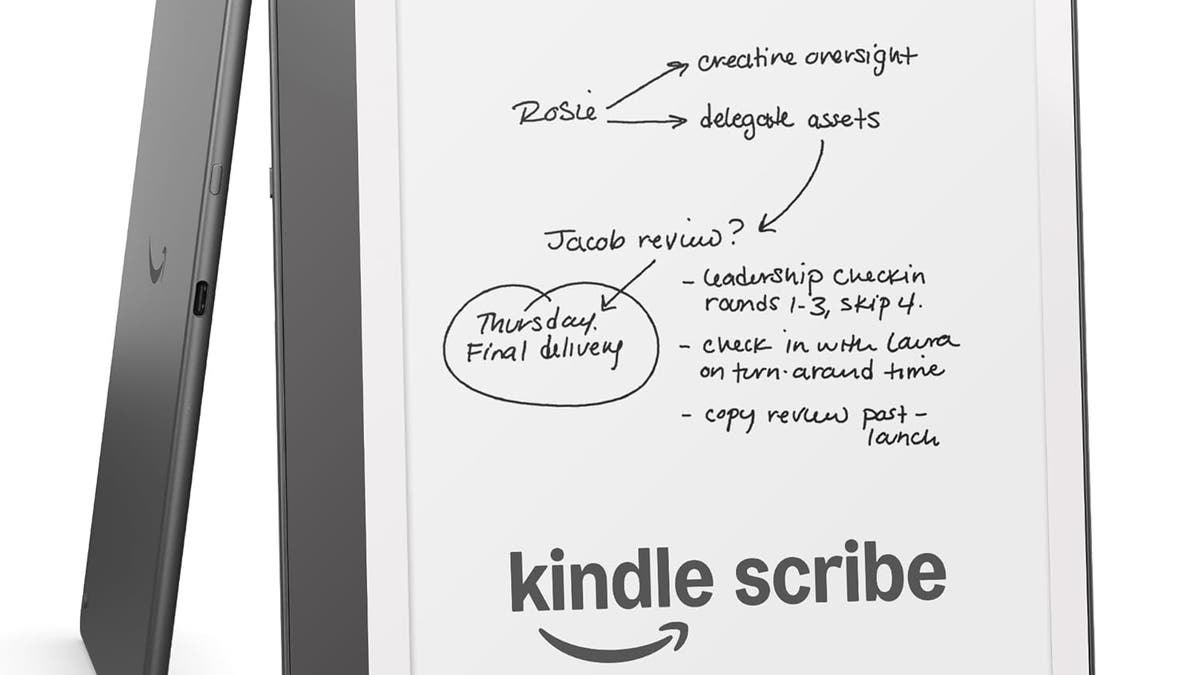 creative oversight
Rosie
delegate assets
Jacob review?
- leadership checkin
rounds 1-3, skip 4.
Thursday.
Final delivery
- check in with Laura
on turn-around time
- copy review post-
launch
kindle scribe